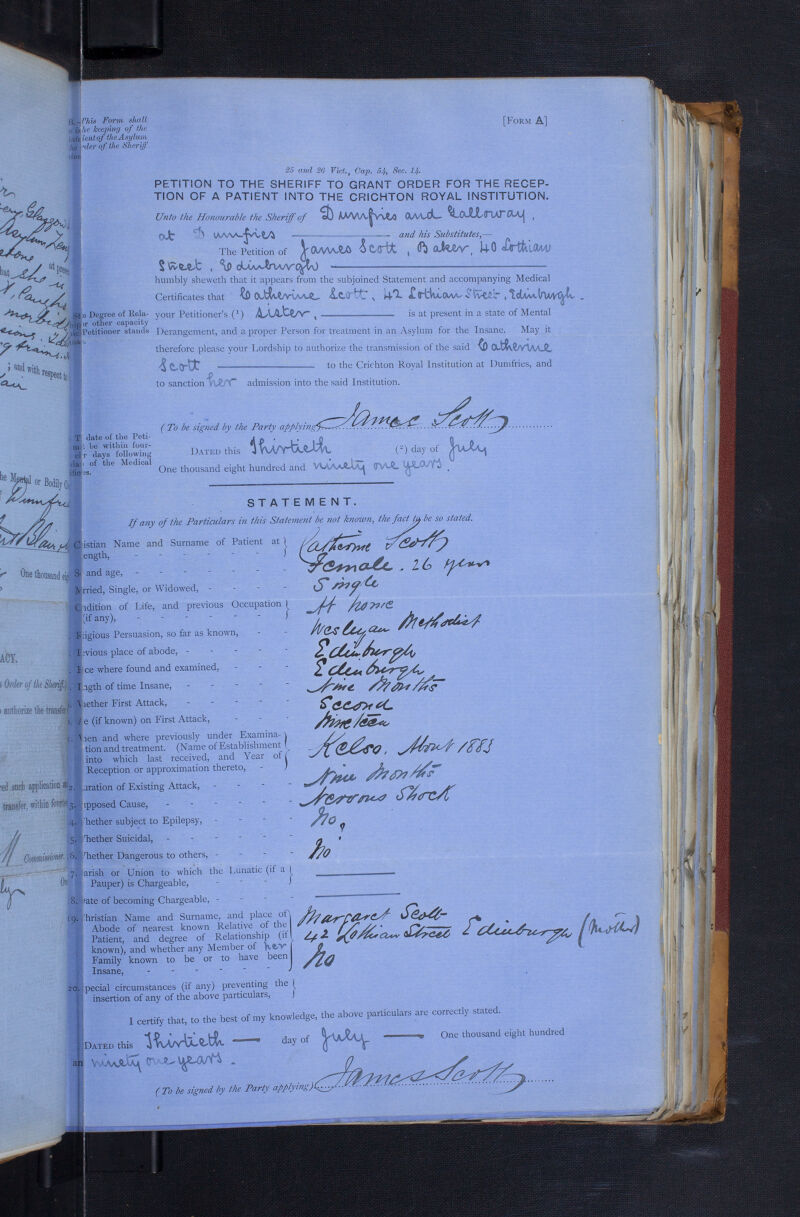 This Form shall
he keeping of the
of the Asylum
of the Sheriff
[FORM A]
25 and 26 Vict., Cap. 54, Sec. 14.
PETITION TO THE SHERIFF TO GRANT ORDER FOR THE RECEP-
TION OF A PATIENT INTO THE CRICHTON ROYAL INSTITUTION.
Unto the Honourable the Sheriff of Dumfries and Galloway,
at Dumfries and his Substitutes,—
The Petition of James Scott, Baker, 40 Lothian
Street, Edinburgh
humbly sheweth that it appears from the subjoined Statement and accompanying Medical
Certificates that Catherine Scott, 42 Lothian Street, Edinburgh.
Degree of Rela-
or other capacity
Petitioner stands
your Petitioner's (1) sister, is at present in a state of Mental
Derangement, and a proper Person for treatment in an Asylum for the Insane. May it
therefore please your Lordship to authorize the transmission of the said Catherine
Scott to the Crichton Royal Institution at Dumfries, and
to sanction her admission into the said Institution.
(To be signed by the Party applying) James Scott
date of the Peti-
be within four-
days following
of the Medical
DATED this Thirtieth (2) day of July
One thousand eight hundred and ninety one years.
STATEMENT.
If any of the Particulars in this Statement be not known, the fact to be so stated.
Name and Surname of Patient at
length, Catherine Scott
and age, Female. 26 years
Single, or Widowed, Single
of Life, and previous Occupation
(if any), At home
Persuasion, so far as known, Wesleyan Methodist
place of abode, Edinburgh
where found and examined, Edinburgh
of time Insane, Nine Months
First Attack, Second
(if known) on First Attack, Nineteen
and where previously under Examina-
tion and treatment. (Name of Establishment
into which last received, and Year of
Reception or approximation thereto, Kelso. About 1883
of Existing Attack, Nine Months
Cause, Nervous Shock
14. Whether subject to Epilepsy, No.
15. Whether Suicidal, ?
16. Whether Dangerous to others, No
17. Parish or Union to which the Lunatic (if a
Pauper) is Chargeable,
18. Date of becoming Chargeable,
19. Christian Name and Surname, and place of
Abode of nearest known Relative of the
Patient, and degree of Relationship (if
known), and whether any Member of her
Family known to be or to have been
Insane,
Margaret Scott
42 Lothian Street Edinburgh (Mother)
No
20. Special circumstances (if any) preventing the
insertion of any of the above particulars,
I certify that, to the best of my knowledge, the above particulars are correctly stated.
DATED this Thirtieth day of July One thousand eight hundred
ninety one years.
(To be signed by the Party applying) James Scott